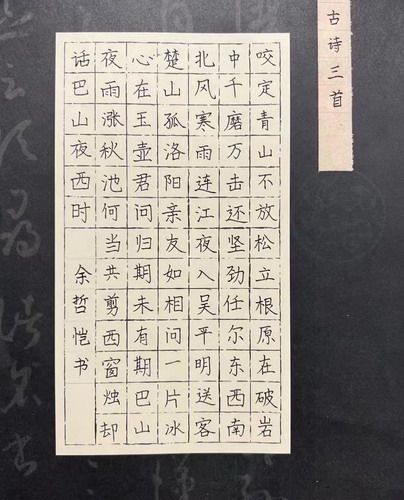 古诗三首
咬定青山不放松立根原在破岩
中千磨万击还坚劲任尔东西南
北风寒雨连江夜入吴平明送客
楚山孤洛阳亲友如相问一片冰
心在玉壶君问归期未有期巴山
夜雨涨秋池何当共剪西窗烛却
话巴山夜西时
余哲恺书